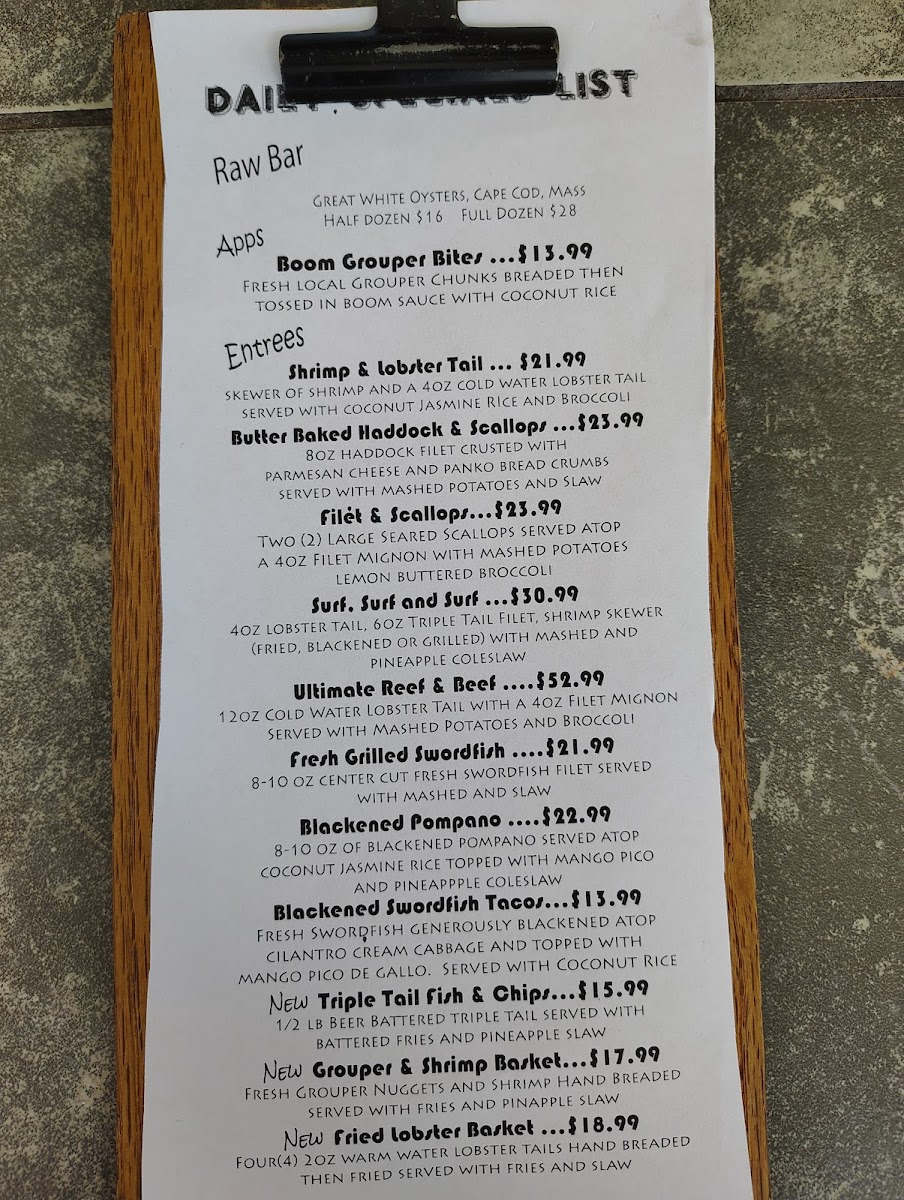 LIST
Raw Bar
Great White Oysters, Cape Cod, Mass
Half dozen $16 Full Dozen $28
Apps
Boom Grouper Bites ...$13.99
Fresh local Grouper Chunks breaded then
tossed in boom sauce with coconut rice
Entrees
Shrimp & Lobster Tail ... $21.99
skewer of shrimp and a 4oz cold water lobster tail
served with coconut Jasmine Rice and Broccoli
Butter Baked Haddock & Scallops ...$23.99
8oz haddock filet crusted with
parmesan cheese and panko bread crumbs
served with mashed potatoes and Slaw
Filet & Scallops...$23.99
Two (2) Large Seared Scallops served atop
a 4oz Filet Mignon with mashed potatoes
lemon buttered broccoli
Surf, Surf and Surf ...$30.99
4oz lobster tail, 6oz Triple Tail Filet, shrimp skewer
(fried, blackened or grilled) with mashed and
pineapple coleslaw
Ultimate Reef & Beef ....$52.99
12oz Cold Water Lobster Tail with a 4oz Filet Mignon
served with Mashed Potatoes and Broccoli
Fresh Grilled Swordfish ....$21.99
8-10 oz center cut fresh swordfish filet served
with mashed and slaw
Blackened Pompano ....$22.99
8-10 oz of blackened pompano served atop
coconut jasmine rice topped with mango pico
and pineappple coleslaw
Blackened Swordfish Tacos...$13.99
Fresh Swordfish generously blackened atop
cilantro cream cabbage and topped with
mango pico de gallo. Served with Coconut Rice
New Triple Tail Fish & Chips...$15.99
1/2 lb Beer Battered triple tail served with
battered fries and pineapple slaw
New Grouper & Shrimp Basket...$17.99
Fresh Grouper Nuggets and Shrimp Hand Breaded
served with fries and pinapple slaw
New Fried Lobster Basket ...$18.99
Four(4) 2oz warm water lobster tails hand breaded
then fried served with fries and slaw